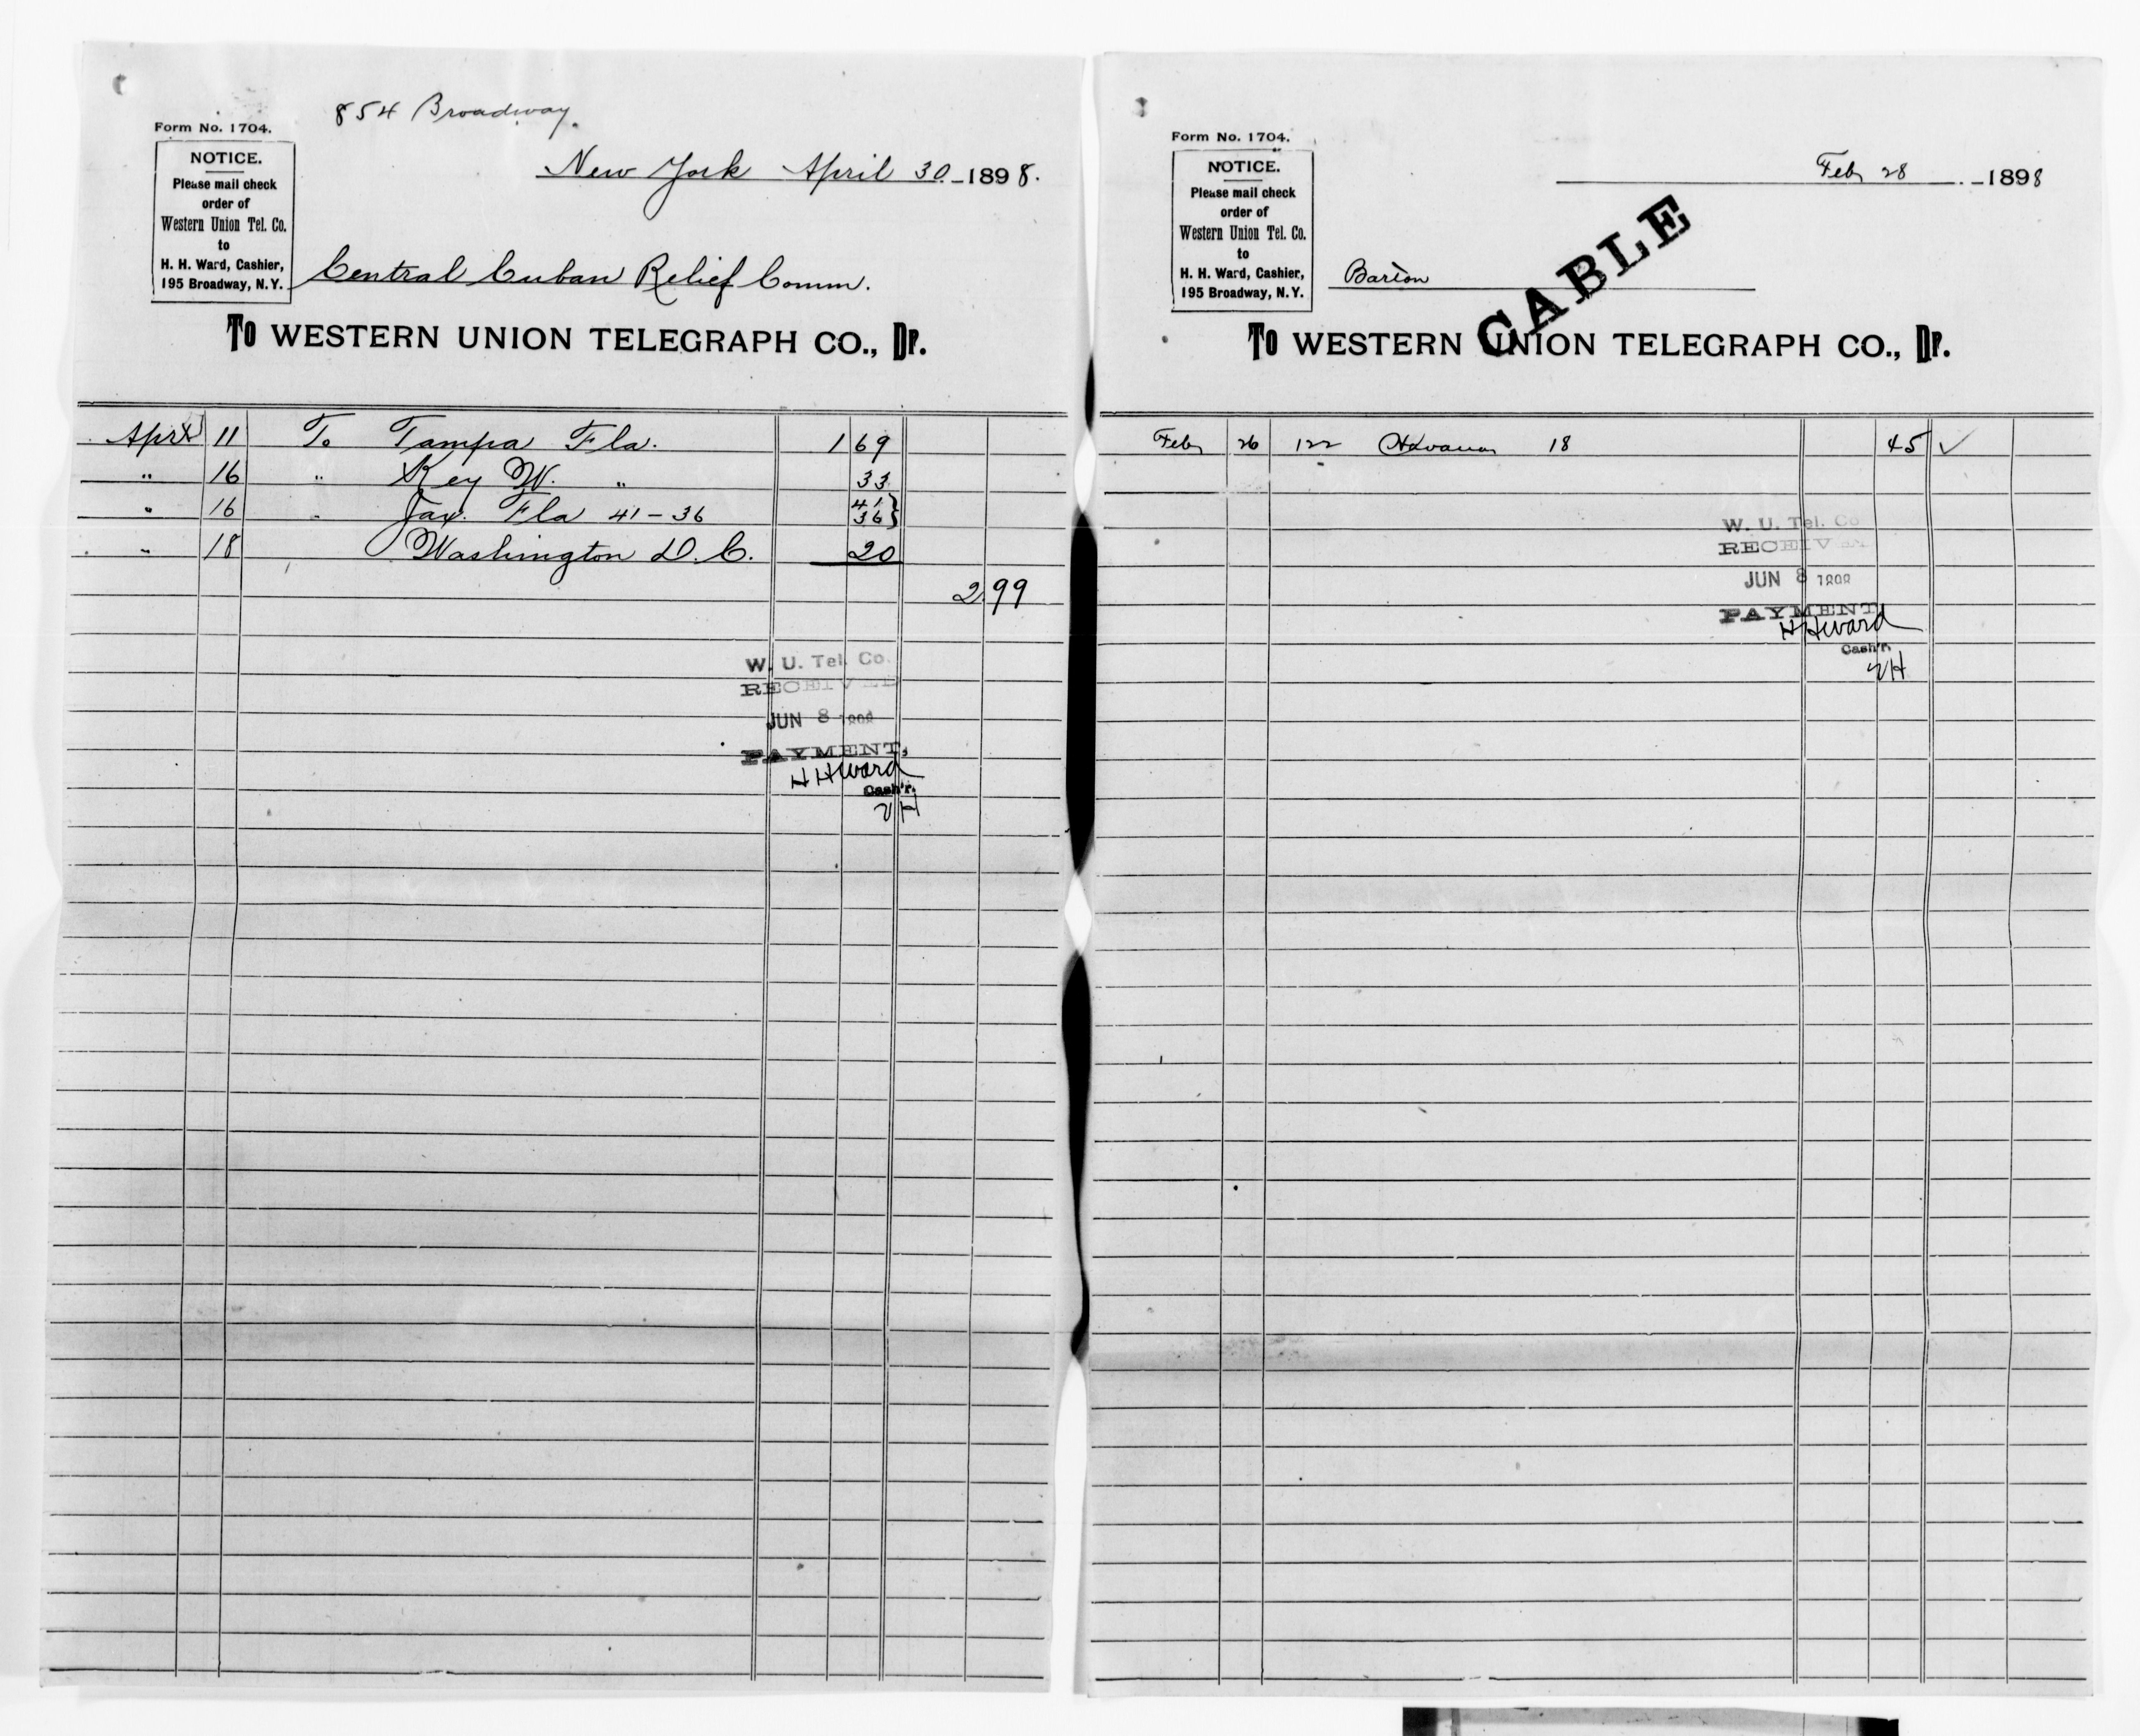 854 Broadway.
Form No. 1704.
NOTICE.
Please mail check
order of
Western Union Tel. Co.
to
H. H. Ward, Cashier,
195 Broadway, N.Y.
New York April 30 1898.
Central Cuban Relief Comm.
To WESTERN UNION TELEGRAPH CO., Dr.
April 11 To Tampa Fla. 1 69
" 16 " Key W. " 33
" 16 " Jax. Fla 41-36 41 } 36 }
" 18 Washington D.C. 20
2.99
W. U. Tel. Co.
RECEIVED
JUN 8
PAYMENT,
HHWard
Cash'r.
Form No. 1704.
NOTICE.
Please mail check
order of
Western Union Tel. Co.
to
H. H. Ward, Cashier,
195 Broadway, N.Y.
Feb 28 1898
CABLE
Barton
To WESTERN UNION TELEGRAPH CO., Dr.
Feb 26 122 Havana 18 45 ✓
W. U. Tel. Co
RECEIVED
JUN 8
PAYMENT
HHWard
Cash'r.